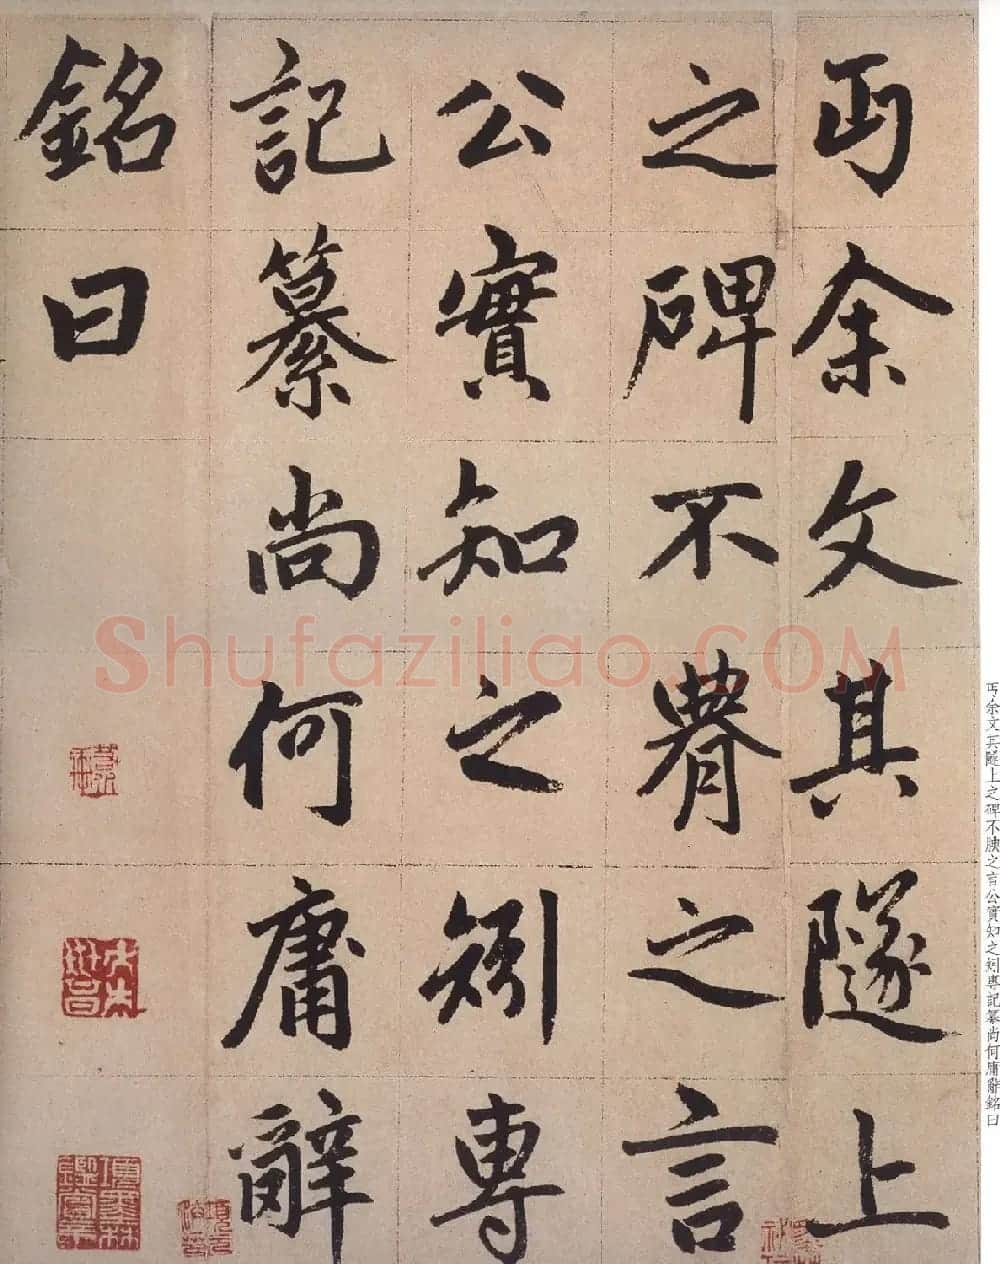 丐余文其隧上
之碑不腆之言
公實知之矧專
記纂尚何庸辭
銘曰
Shufaziliao.COM
丐余文其隧上之碑不腆之言公實知之矧專記纂尚何庸辭銘曰